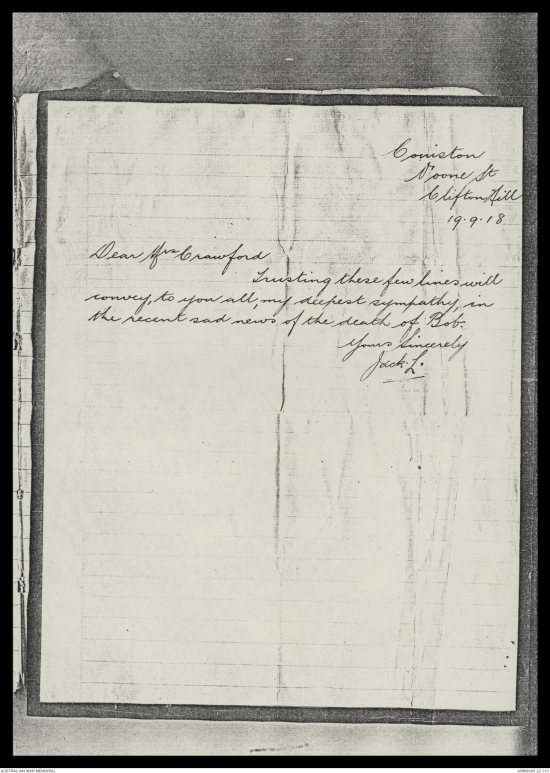 Coniston
Noone St
Clifton Hill
19.9.18
Dear Mrs Crawford
Trusting these few lines will
convey, to you all, my deepest sympathy, in
the recent sad news of the death of Bob.
Yours Sincerely
Jack. L.
AUSTRALIAN WAR MEMORIAL